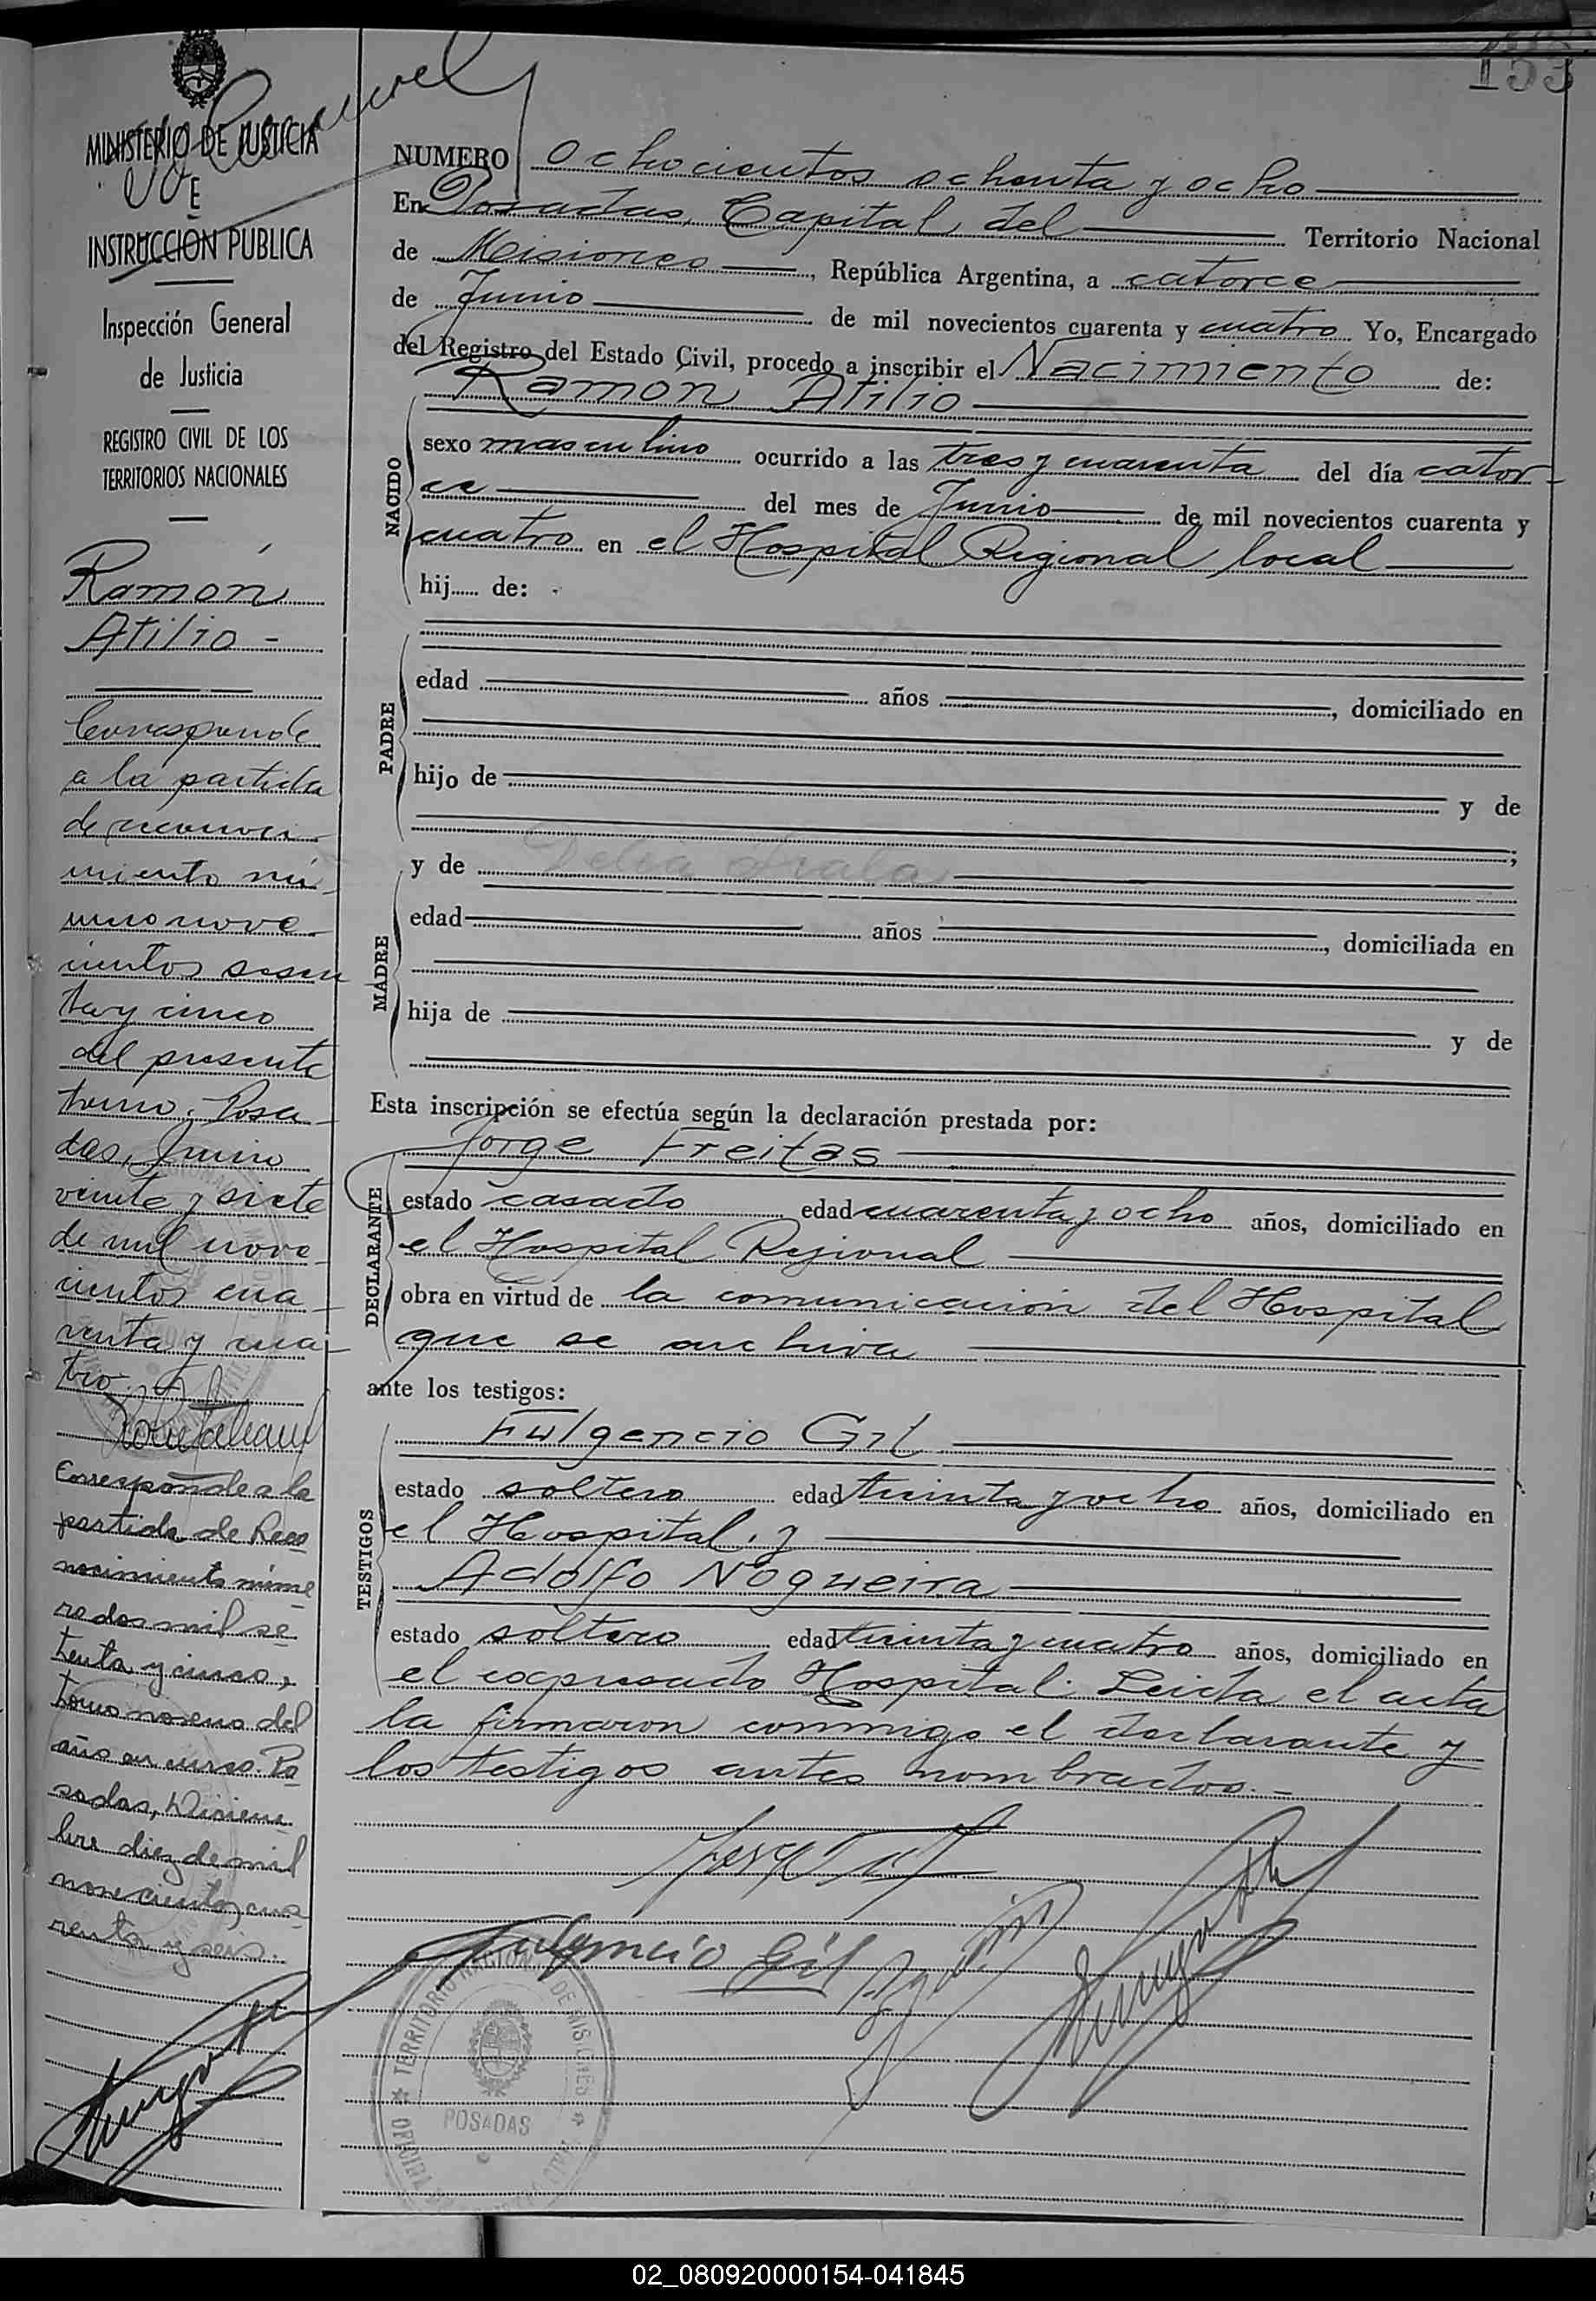 153
MINISTERIO DE JUSTICIA
E
INSTRUCCION PUBLICA
Inspección General
de Justicia
REGISTRO CIVIL DE LOS
TERRITORIOS NACIONALES
Ramón
Atilio -
Corresponde
a la partida
de reconoci-
miento nú-
mero nove-
cientos sesen
ta y cinco
del presente
tomo. Posa-
das, Junio
veinte y siete
de mil nove-
cientos cua-
renta y cua-
tro.
Corresponde a la
partida de Reco
nocimiento núme
ro dos mil se
tenta y cinco,
tomo noveno del
año en curso. Po
sadas, Diciem
bre diez de mil
novecientos cua
renta y seis.
NUMERO ochocientos ochenta y ocho
En Posadas, Capital del Territorio Nacional
de Misiones, República Argentina, a catorce
de Junio de mil novecientos cuarenta y cuatro Yo, Encargado
del Registro del Estado Civil, procedo a inscribir el Nacimiento de:
Ramon Atilio
NACIDO
sexo masculino ocurrido a las tres y cuarenta del día cator-
ce del mes de Junio de mil novecientos cuarenta y
cuatro en el Hospital Regional local
hij...... de:
PADRE
edad años , domiciliado en
hijo de y de
;
y de Delia
MADRE
edad años , domiciliada en
hija de y de
Esta inscripción se efectúa según la declaración prestada por:
Jorge Freitas
DECLARANTE
estado casado edad cuarenta y ocho años, domiciliado en
el Hospital Regional
obra en virtud de la comunicación del Hospital
que se archiva
ante los testigos:
TESTIGOS
Fulgencio Gil
estado soltero edad treinta y ocho años, domiciliado en
el Hospital, y
Adolfo Nogueira
estado soltero edad treinta y cuatro años, domiciliado en
el expresado Hospital. Leida el acta
la firmaron conmigo el declarante y
los testigos antes nombrados.-
Fulgencio Gil
TERRITORIO NACIONAL DE MISIONES
POSADAS
OFICINA
02_080920000154-041845